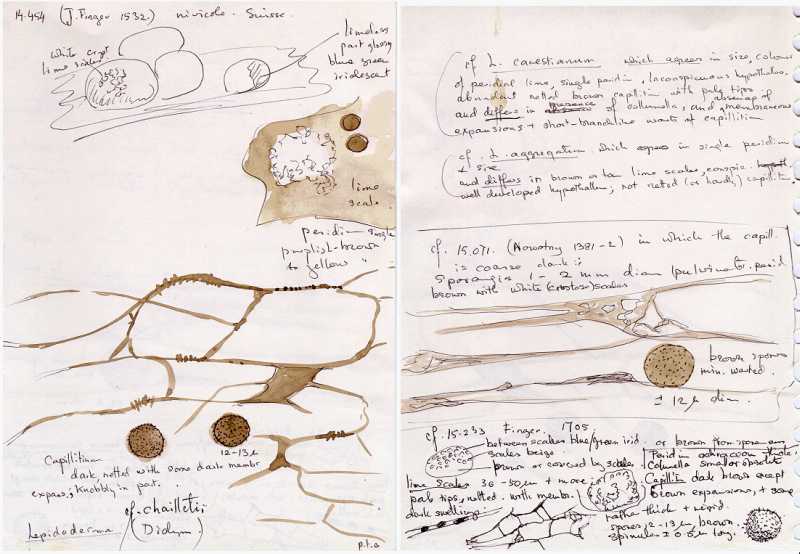 14.454 (J. Finger 1532.) nivicole. Suisse.
white cryst
lime scales
limeless
part glossy
blue green
iridescent
lime
scale.
peridium single
purplish-brown
to yellow "
12-13µ
Capillitium
dark, netted with some dark membr
expans, knobbly in part.
cf. chailletii
Lepidoderma (Didym.)
p.t.o
cf L. carestianum which agrees in size, colour
of peridial lime, single peridium, inconspicuous hypothallus,
abundant netted brown capillitium with pale tips
and differs in presence absence of columella, and membraneous
expansions & short-branchline warts of capillitium
cf. L. aggregatum which agrees in single peridium
+ size
and differs in brown or tan lime scales, conspic.
well developed hypothallus, not netted (or hardly) capillit.
cf. 15.071. (Nowotny 1381-2) in which the capill.
is coarse dark:
Sporangia 1-2 mm diam (pulvinate. perid
brown with white (crustose) scales
brown spores
min. warted.
± 12µ dim.
cf. 15.233 Finger. 1705
between scales blue/green irid. or brown from spore mass
scales beige.
brown or covered by scales.
lime scales 36-50µ + more
pale tips, netted. with membr.
dark swellings.
Columella small or absent
Capillit dark brown except
brown expansions, + some
rather thick + rigid.
spores 12-13µ brown.
spinules ± 0.5µ long.